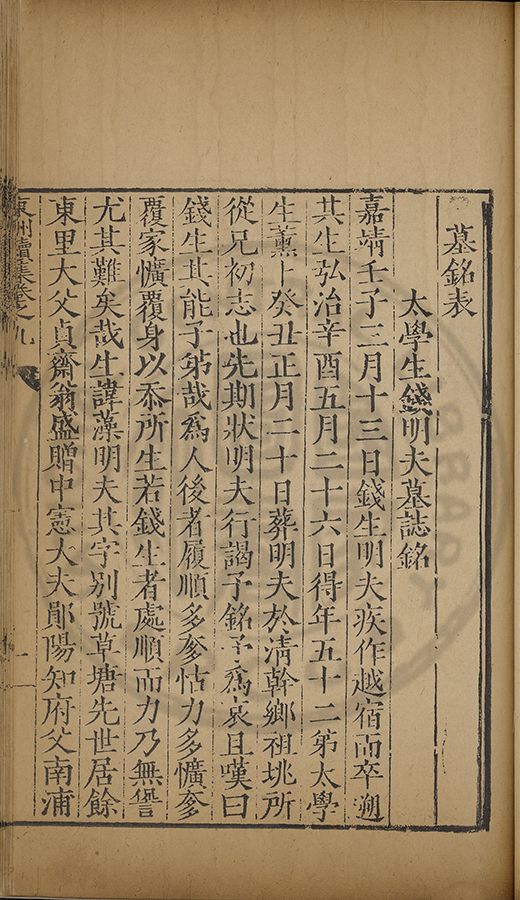 墓銘表
太學生錢明夫墓誌銘
嘉靖壬子三月十三日錢生明夫疾作越宿而卒遡
其生弘治辛酉五月二十六日得年五十二弟太學
生薰卜癸丑正月二十日葬明夫於清幹鄉祖垗所
從兄初志也先期狀明夫行謁予銘予爲哀且嘆曰
錢生其能子弟哉爲人後者履順多奓怙力多懭奓
覆家懭覆身以忝所生若錢生者處順而力乃無諐
尤其難矣哉生諱藻明夫其字别號草塘先世居餘
東里大父貞齋翁盛贈中憲大夫鄖陽知府父南浦
東洲續集卷之九
一